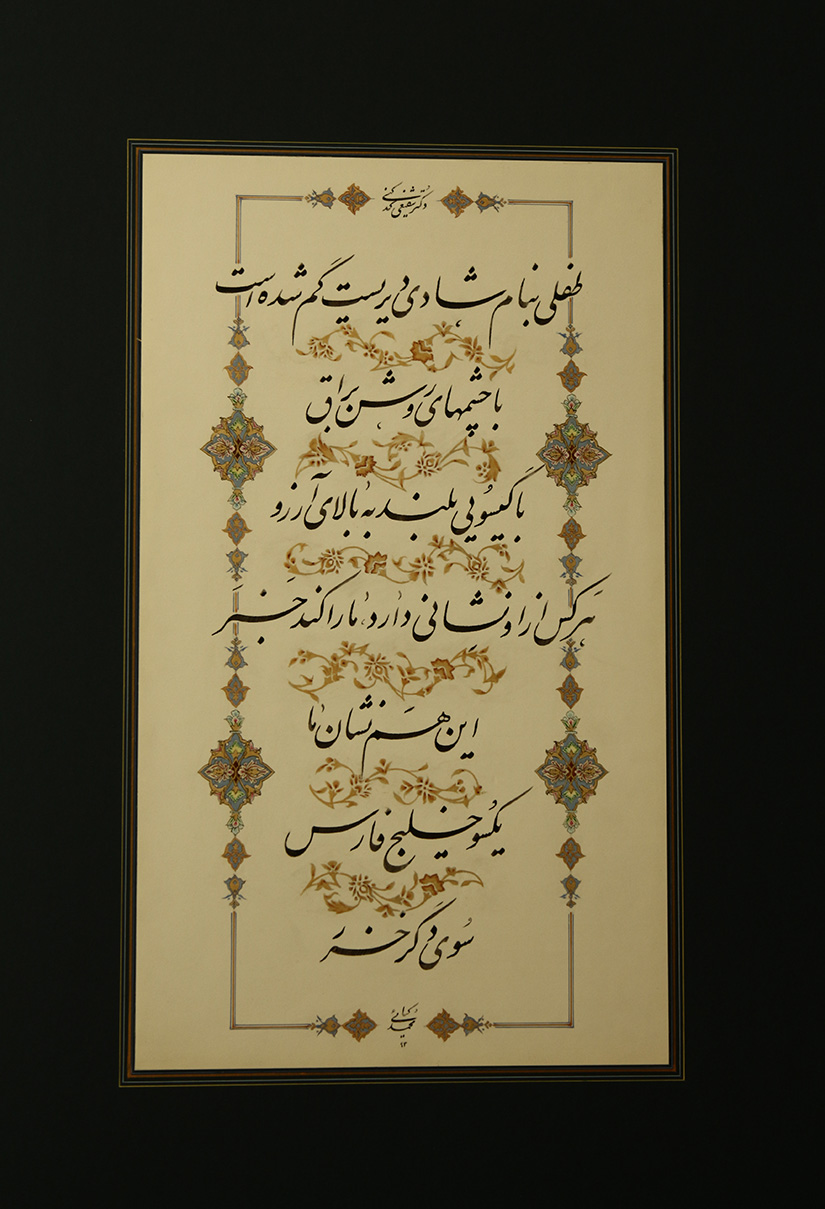 دکتر شفیعی کدکنی
طفلی بنام شادی دیریست گم شده است
با چشمهای روشن براق
با گیسویی بلند به بالای آرزو
هر کس از او نشانی دارد، ما را کند خبر
این هم نشان ما
یکسو خلیج فارس
سوی دگر خزر